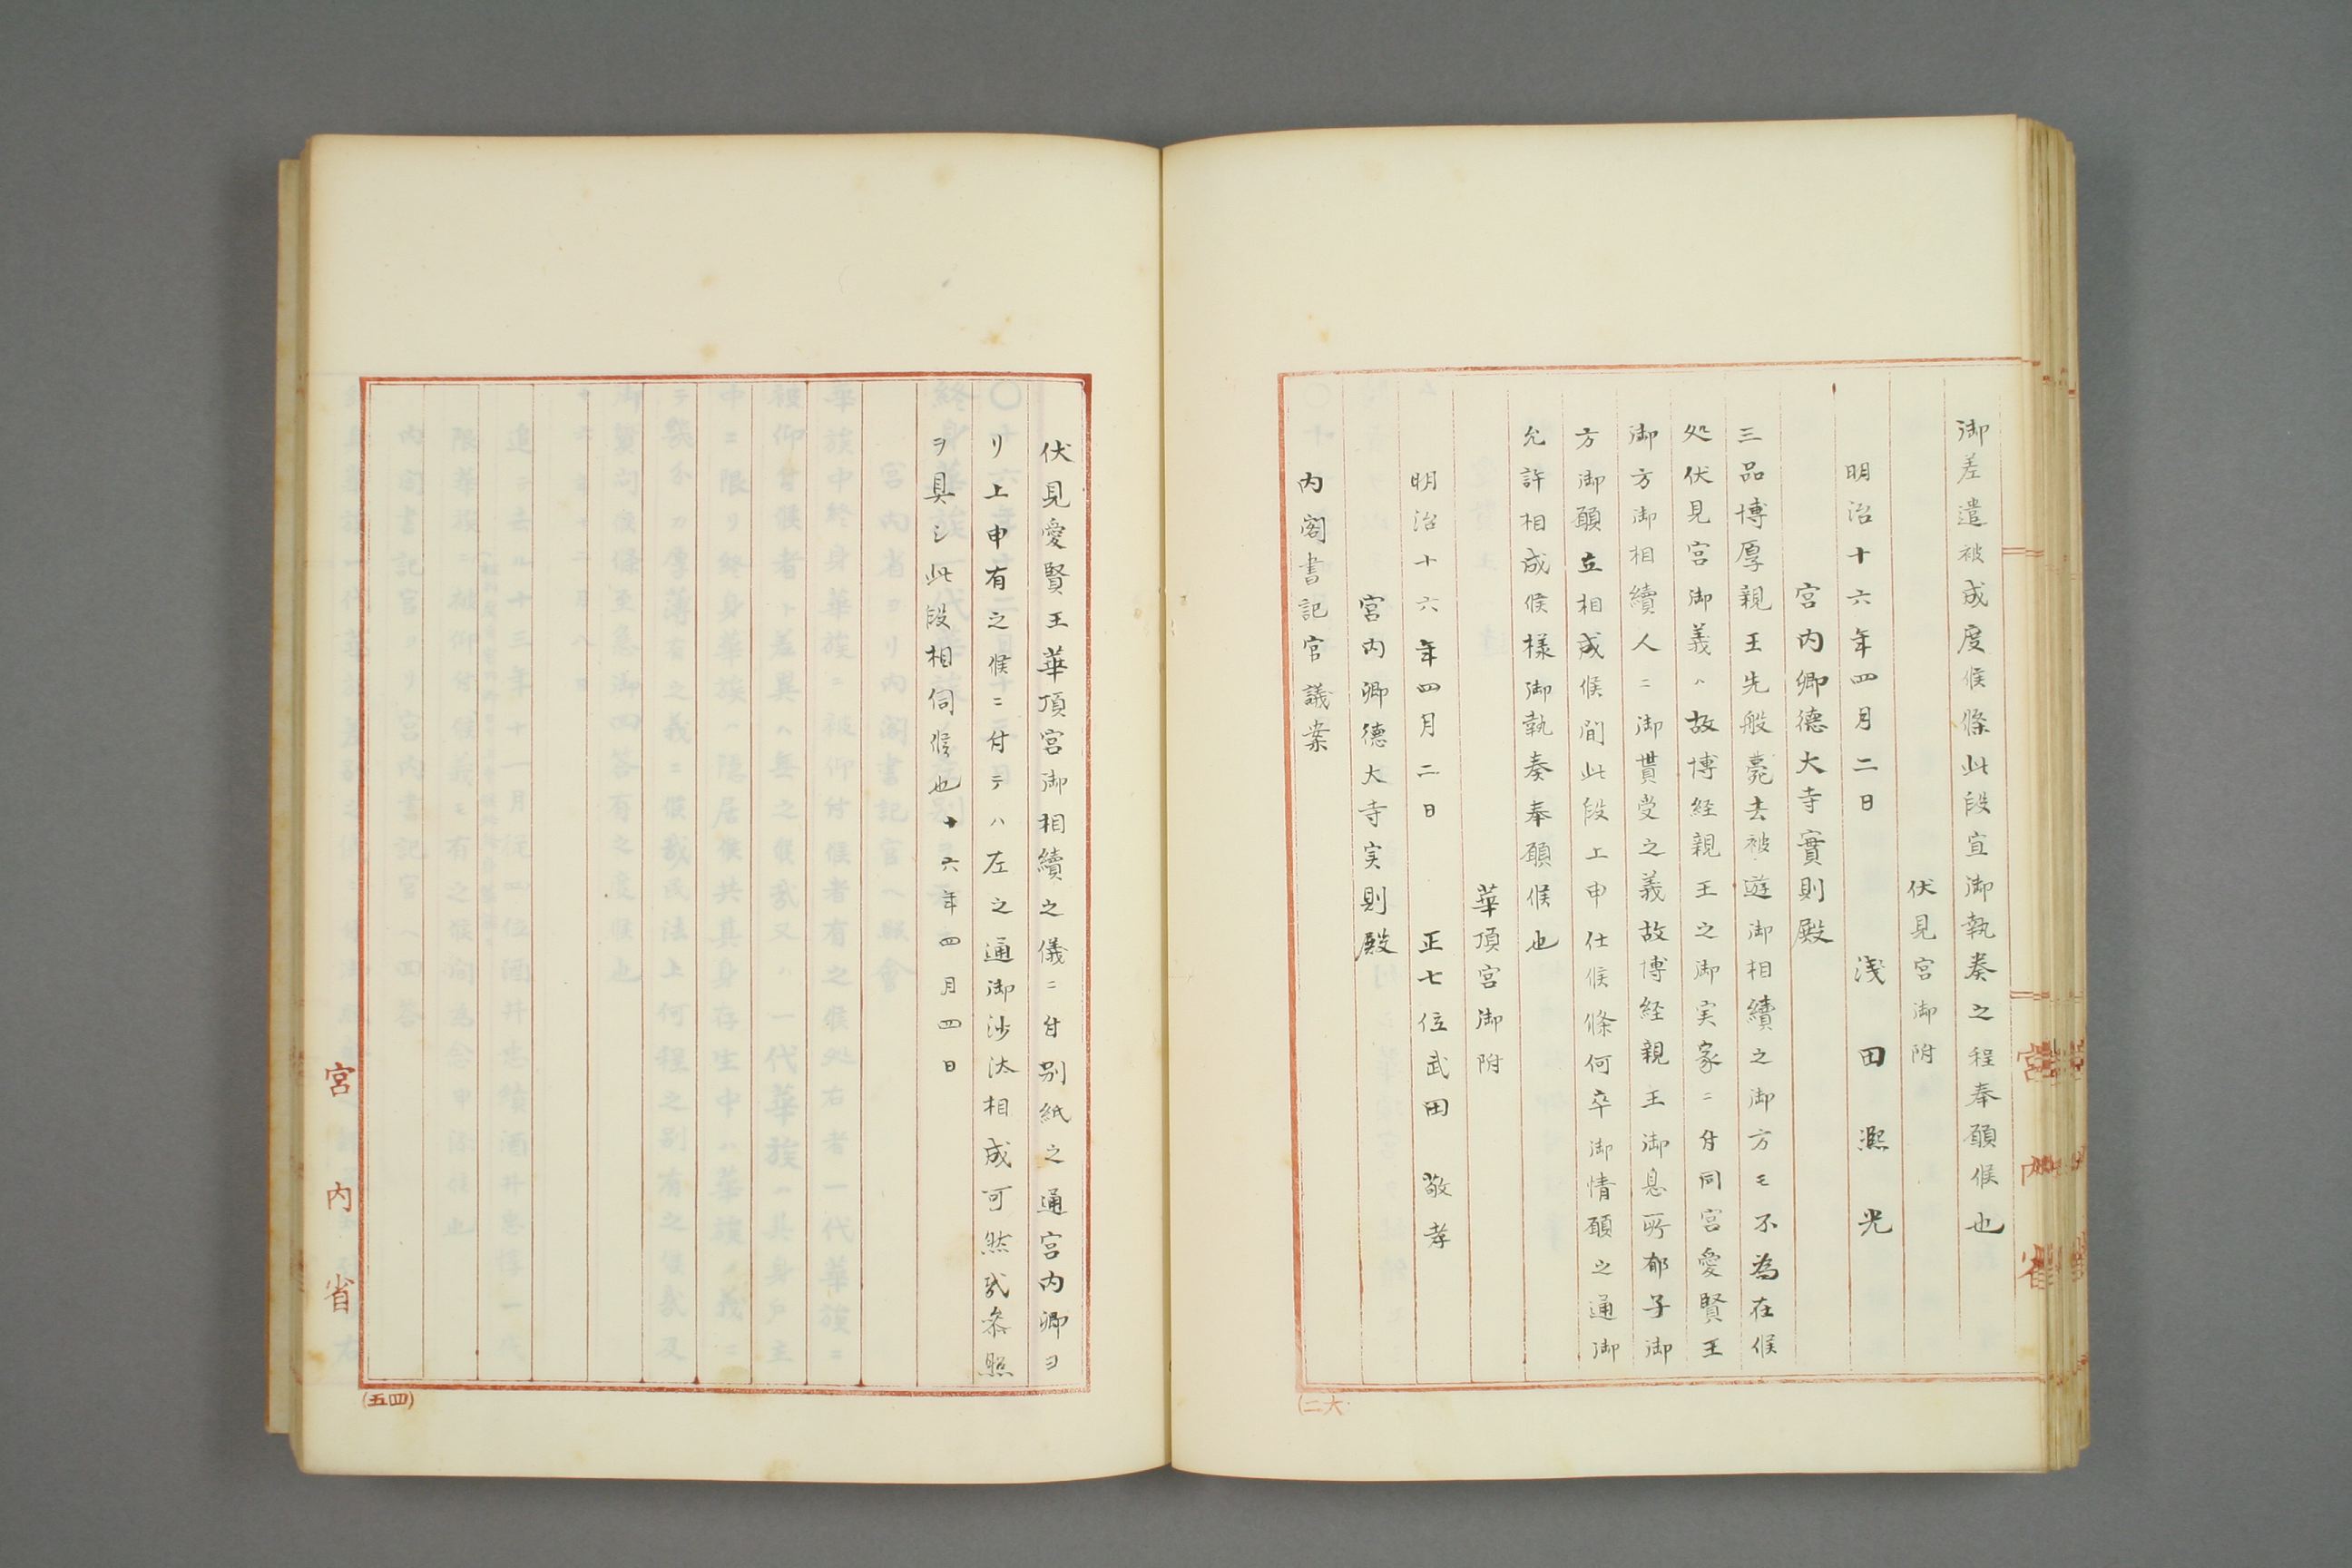 御差遣被成度候條此段宜御執奏之程奉願候也
伏見宮御附
明治十六年四月二日　浅田㵢光
宮内卿德大寺實則殿
三品博厚親王先般薨去被遊御相續之御方モ不為在候
処伏見宮御義ハ故博経親王之御実家ニ付同宮愛賢王
御方御相續人ニ御貰受之義故博経親王御息所郁子御
方御願立相成候間此段上申仕候條何卒御情願之通御
允許相成候様御執奏奉願候也
華頂宮御附
明治十六年四月二日　正七位武田敬孝
宮内卿德大寺実則殿
内閣書記官議案
伏見愛賢王華頂宮御相續之儀ニ付別紙之通宮内卿ヨ
リ上申有之候ニ付テハ左之通御沙汰相成可然哉参照
ヲ具シ此段相伺候也十六年四月四日
宮内省
(五四)
宮内省